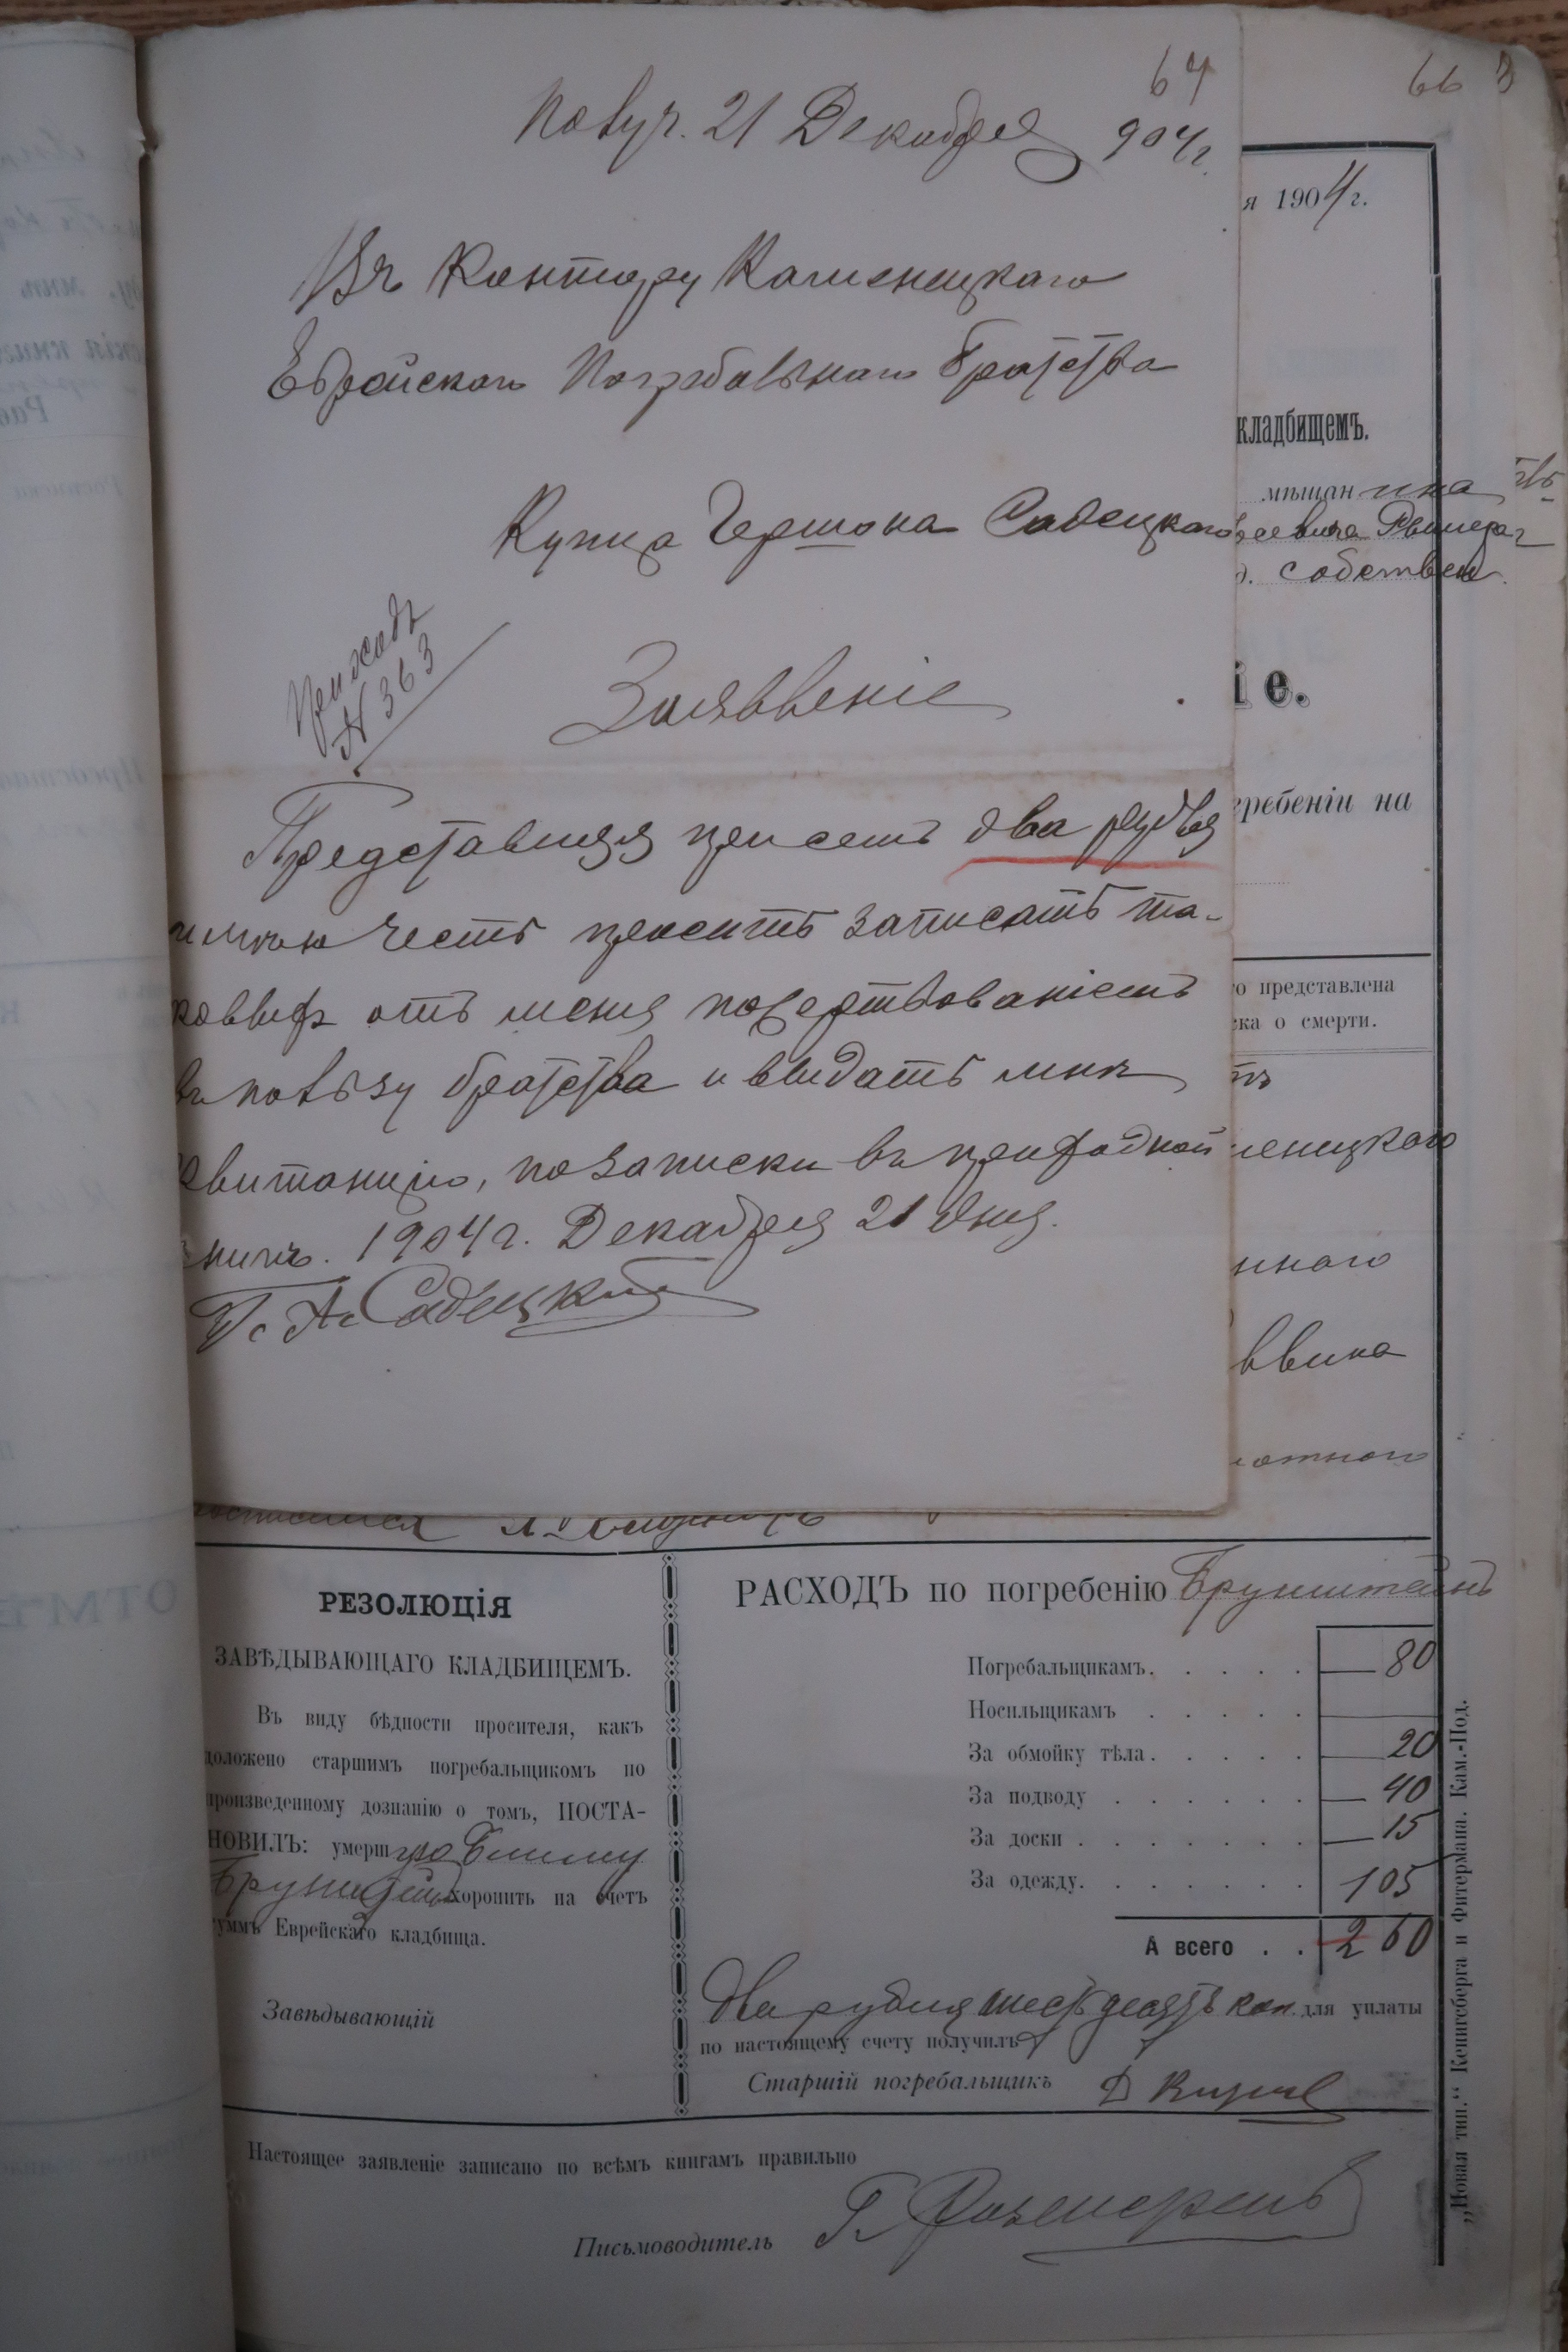 64
Получ. 21 Декабря 904 г.
Въ Контору Каменецкаго
Еврейскаго Погребальнаго братства
Купца Гершона Садецкаго
Приходъ
№ 363
Заявленіе
Представляя при семъ два рубля
имѣю честь просить записать та-
ковыхъ отъ меня пожертвованіемъ
въ пользу братства и выдать мнѣ
квитанцію, по записки въ приходной
книгѣ. 1904 г. Декабря 21 дня.
Г. А. Садецкій
66
я 1904 г.
кладбищемъ.
мѣщанина
д. собствен.
іе.
гребеніи на
о представлена
ска о смерти.
тъ
менецкаго
ннаго
РЕЗОЛЮЦІЯ
ЗАВѢДЫВАЮЩАГО КЛАДБИЩЕМЪ.
Въ виду бѣдности просителя, какъ
доложено старшимъ погребальщикомъ по
произведенному дознанію о томъ, ПОСТА-
НОВИЛЪ: умершую
Брунштейнъ хоронить на счетъ
суммъ Еврейскаго кладбища.
Завѣдывающій
РАСХОДЪ по погребенію Брунштейнъ
Погребальщикамъ. . . . . — 80
Носильщикамъ . . . . .
За обмойку тѣла. . . . . — 20
За подводу . . . . . . — 40
За доски . . . . . . . — 15
За одежду. . . . . . . 1 05
А всего . . 2 60
Два рубля шестьдесятъ коп. для уплаты
по настоящему счету получилъ
Старшій погребальщикъ Д
Настоящее заявленіе записано по всѣмъ книгамъ правильно
Письмоводитель Г.
„Новая тип.“ Кенигсберга и Фитермана. Кам.-Под.